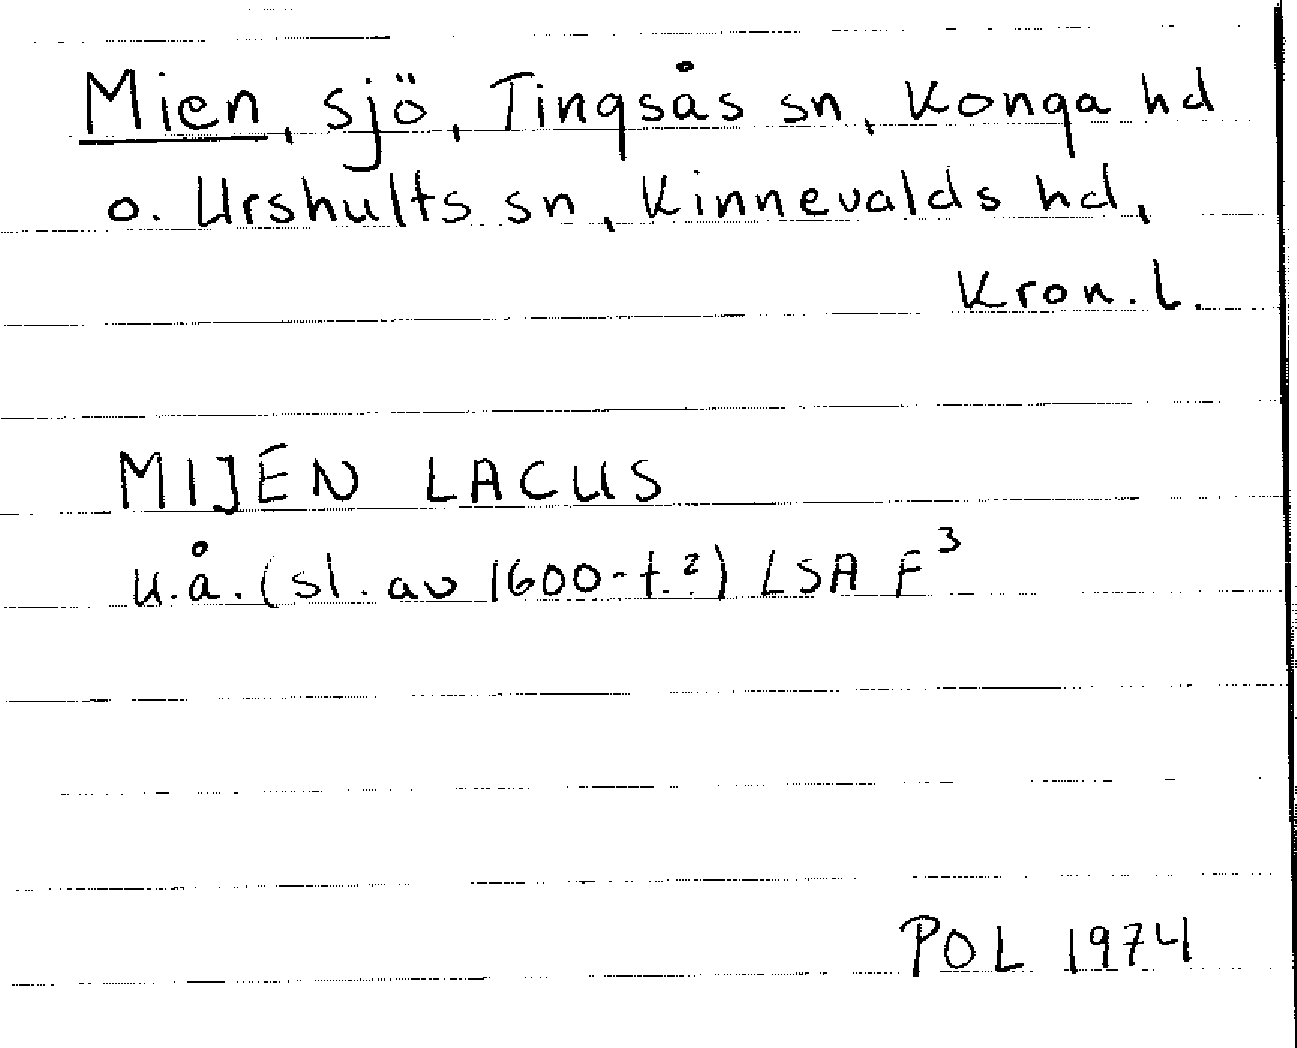 Mien, sjö, Tingsås sn, Konga hd
o. Urshults sn, Kinnevalds hd,
Kron. l.
MIJEN LACUS
u.å. (sl. av 1600-t.?) LSA F³
POL 1974